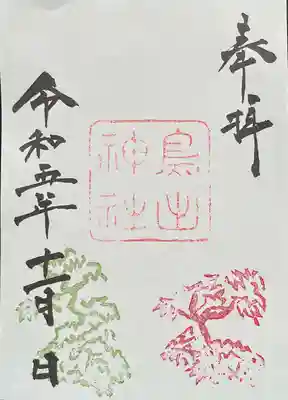 奉拝
鳥出
神社
令和五年十二月 日